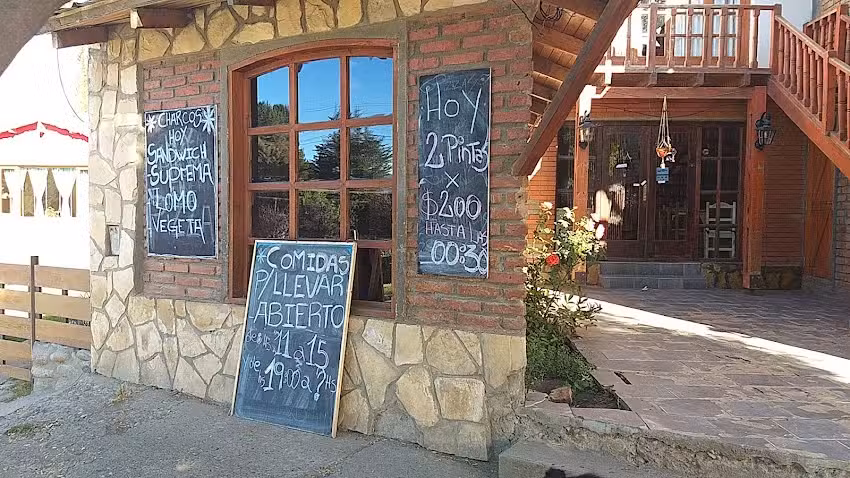 *CHARCOS*
HOY
SANDWICH
SUPREMA
LOMO
VEGETA
HOY
2 PINTAS
X
$200
HASTA LAS
00:30
*COMIDAS
P/LLEVAR
ABIERTO
DE 11 a 15
Y DE 19:00 a ? HS